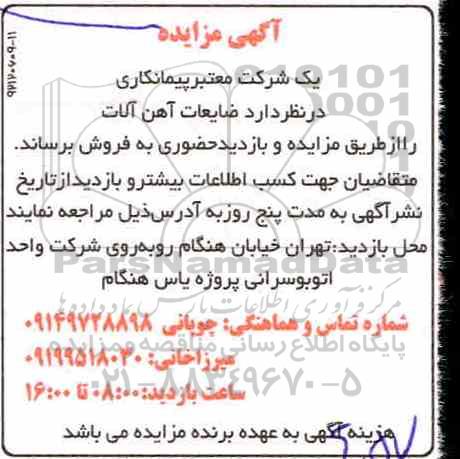 آگهی مزایده
یک شرکت معتبرپیمانکاری
درنظردارد ضایعات آهن آلات
راازطریق مزایده و بازدیدحضوری به فروش برساند.
متقاضیان جهت کسب اطلاعات بیشترو بازدیدازتاریخ
نشرآگهی به مدت پنج روزبه آدرس‌ذیل مراجعه نمایند
محل بازدید:تهران خیابان هنگام روبه‌روی شرکت واحد
اتوبوسرانی پروژه یاس هنگام
شماره تماس و هماهنگی: چوپانی ۰۹۱۴۹۷۲۸۸۹۸
میرزاخانی: ۰۹۱۹۹۵۱۸۰۳۰
ساعت بازدید:۰۸:۰۰ تا ۱۶:۰۰
هزینه آگهی به عهده برنده مزایده می باشد
۹۷۱۲۰۷۰۹-۱۱
ParsNamadData
مرکز فرآوری اطلاعات پارس نماد داده ها
پایگاه اطلاع رسانی مناقصه و مزایده
۰۲۱-۸۸۳۴۹۶۷۰-۵